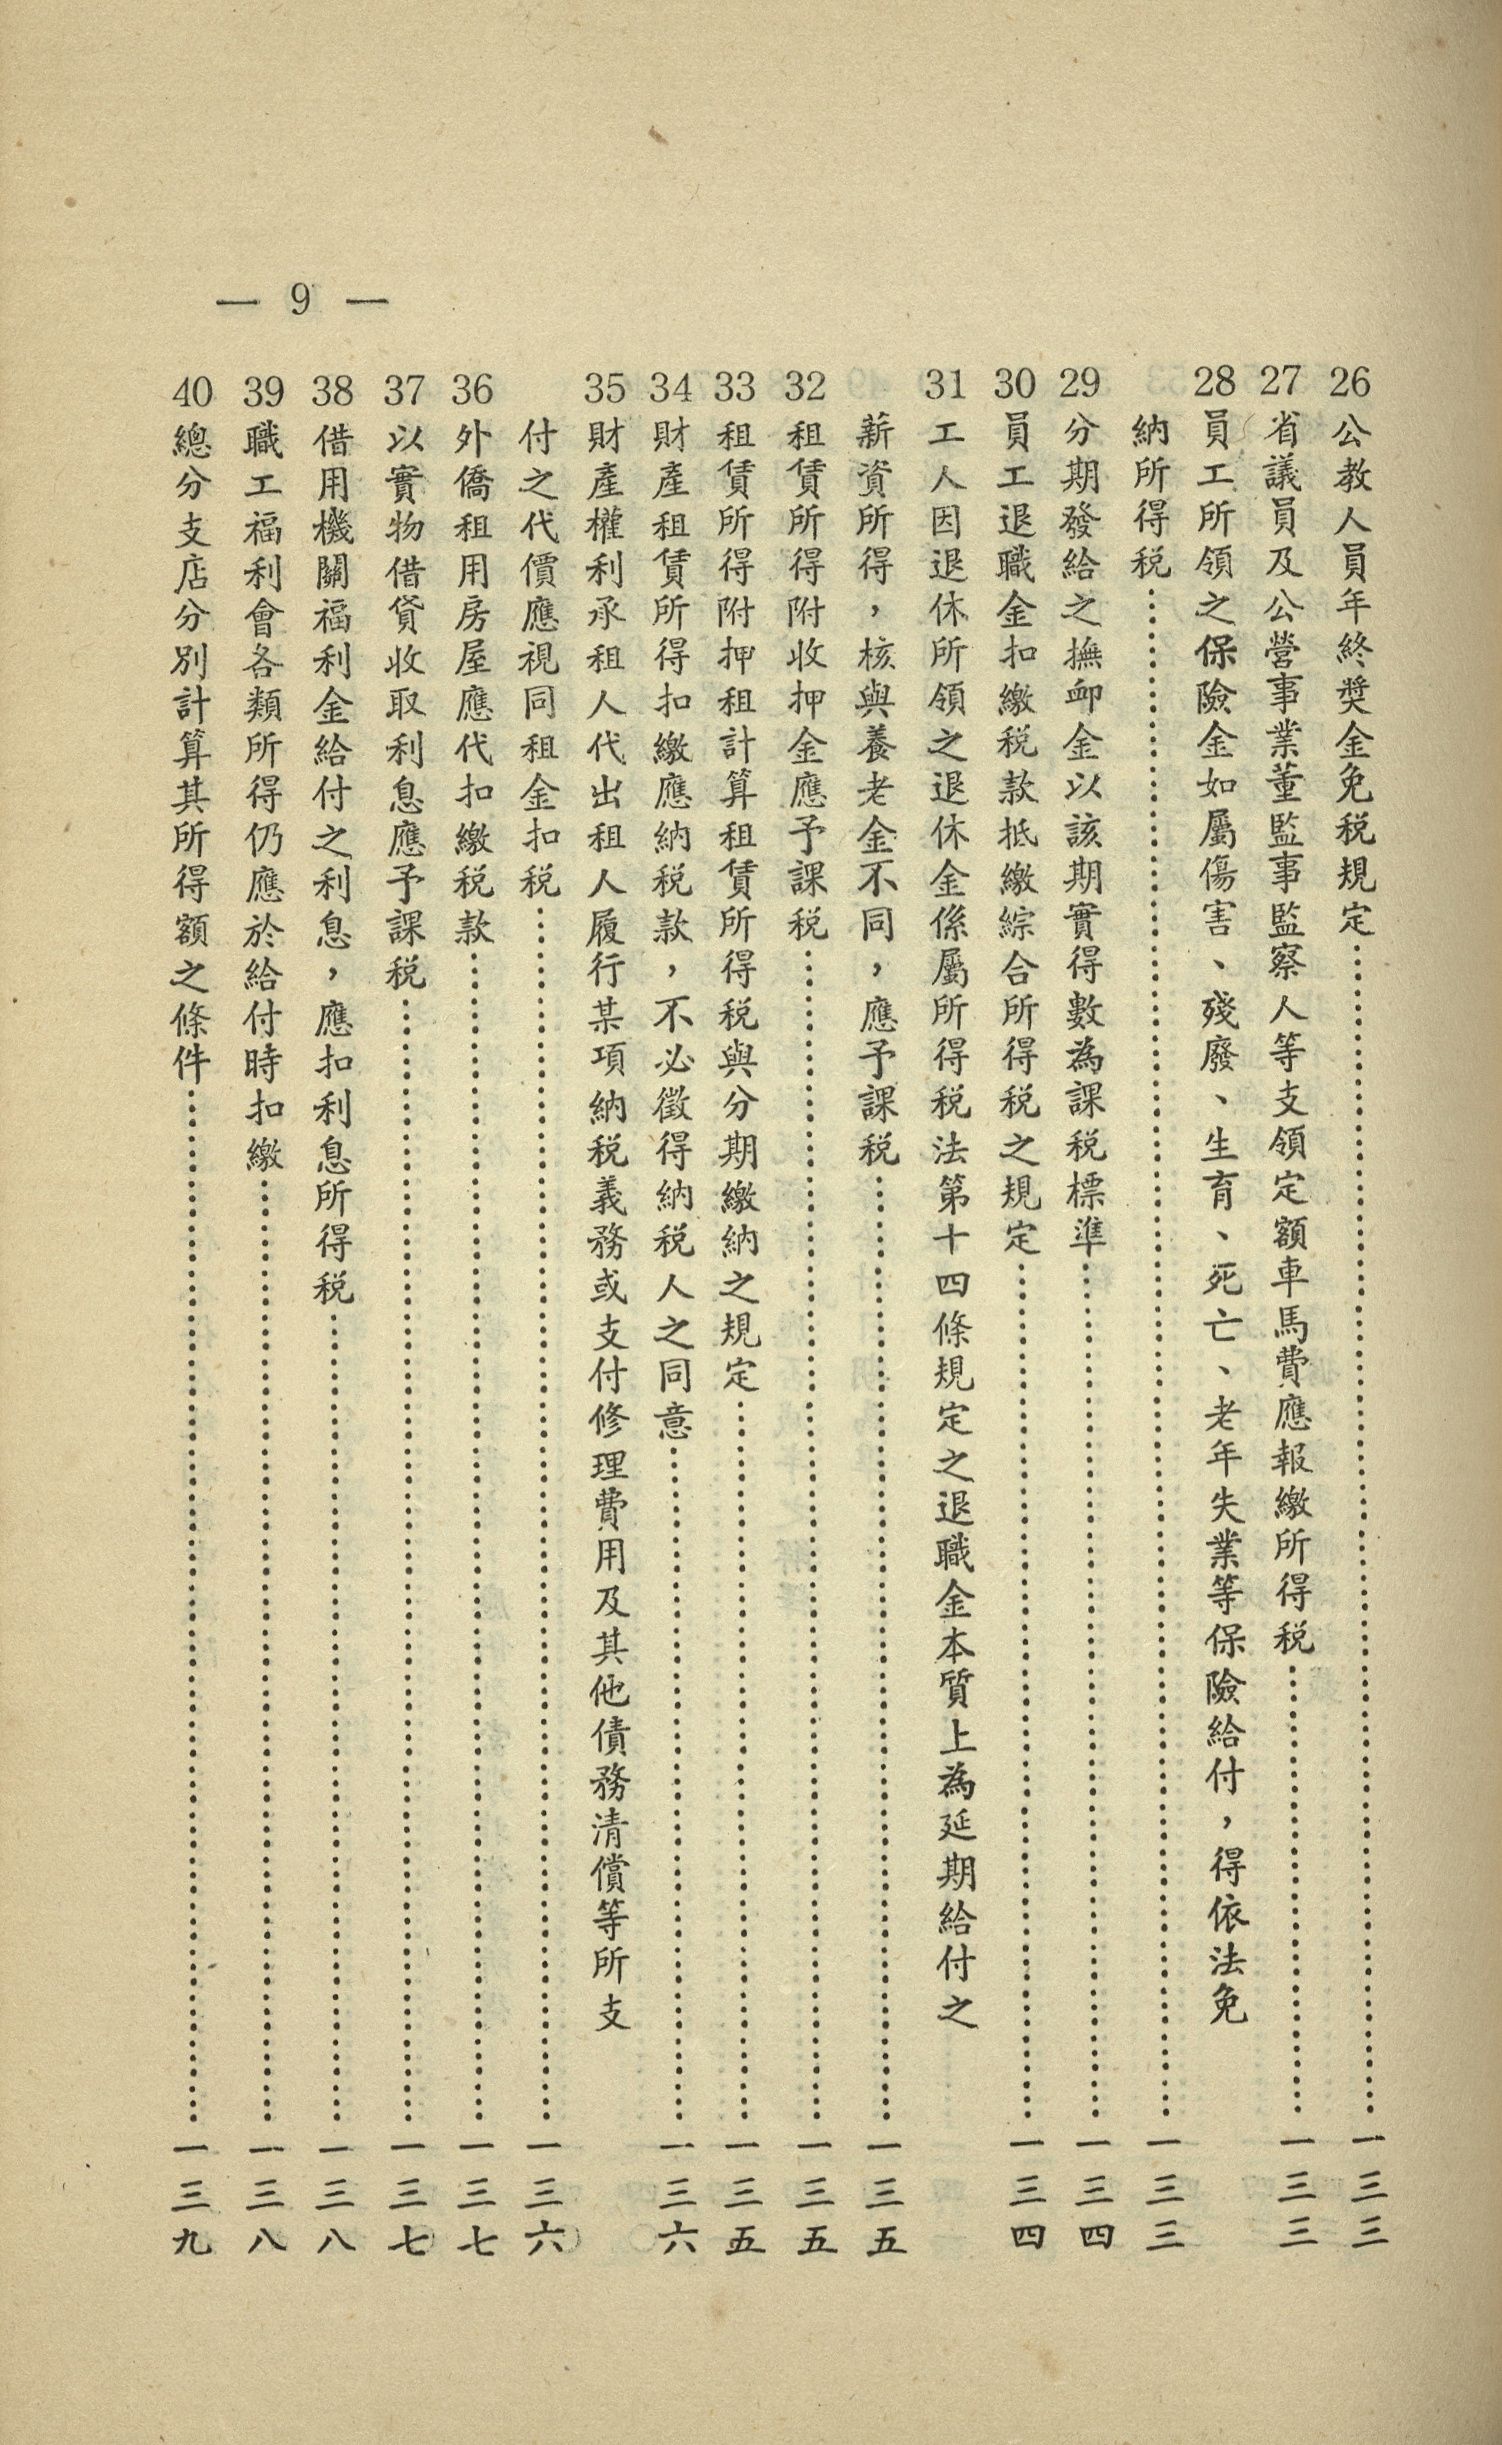 — 9 —
26 公教人員年終獎金免稅規定……一三三
27 省議員及公營事業董監事監察人等支領定額車馬費應報繳所得稅……一三三
28 員工所領之保險金如屬傷害、殘廢、生育、死亡、老年失業等保險給付，得依法免
納所得稅……一三三
29 分期發給之撫卹金以該期實得數為課稅標準……一三四
30 員工退職金扣繳稅款抵繳綜合所得稅之規定……一三四
31 工人因退休所領之退休金係屬所得稅法第十四條規定之退職金本質上為延期給付之
薪資所得，核與養老金不同，應予課稅……一三五
32 租賃所得附收押金應予課稅……一三五
33 租賃所得附押租計算租賃所得稅與分期繳納之規定……一三五
34 財產租賃所得扣繳應納稅款，不必徵得納稅人之同意……一三六
35 財產權利承租人代出租人履行某項納稅義務或支付修理費用及其他債務清償等所支
付之代價應視同租金扣稅……一三六
36 外僑租用房屋應代扣繳稅款……一三七
37 以實物借貸收取利息應予課稅……一三七
38 借用機關福利金給付之利息，應扣利息所得稅……一三八
39 職工福利會各類所得仍應於給付時扣繳……一三八
40 總分支店分別計算其所得額之條件……一三九